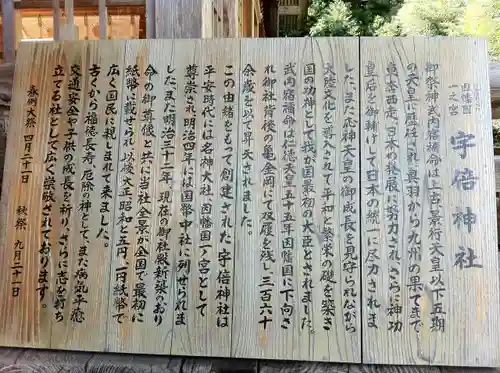 因幡国
一之宮
宇倍神社
御祭神武内宿禰命は上古景行天皇以下五期
の天皇に歴任され奥羽から九州の果てまで
東奔西走、日本の発展に努力され、さらに神功
皇后を御輔けして日本の統一に尽力されま
した。また応神天皇の御成長を見守られながら
大陸文化を導入されて平和と繁栄の礎を築き
国の功神として我が国最初の大臣とされました。
武内宿禰命は仁徳天皇五十五年因幡国に下向さ
れ御社背後の亀金岡にて双履を残し、三百六十
余歳を以て昇天されました。
この由緒をもって創建された宇倍神社は
平安時代には名神大社、因幡国一ノ宮として
尊崇され明治四年には国幣中社に列せられま
した。また明治三十一年、現在の御社殿新築のおり
命の御尊像と共に当社全景が全国で最初に
紙幣に載せられ、以後大正、昭和と五円、一円紙幣で
広く国民に親しまれて来ました。
古くから福徳長寿、厄除の神として、また病気平癒
交通安全や子供の成長を祈り、さらに志を打ち
立てる社として広く崇敬されております。
春例大祭 四月二十一日 秋祭 九月二十一日